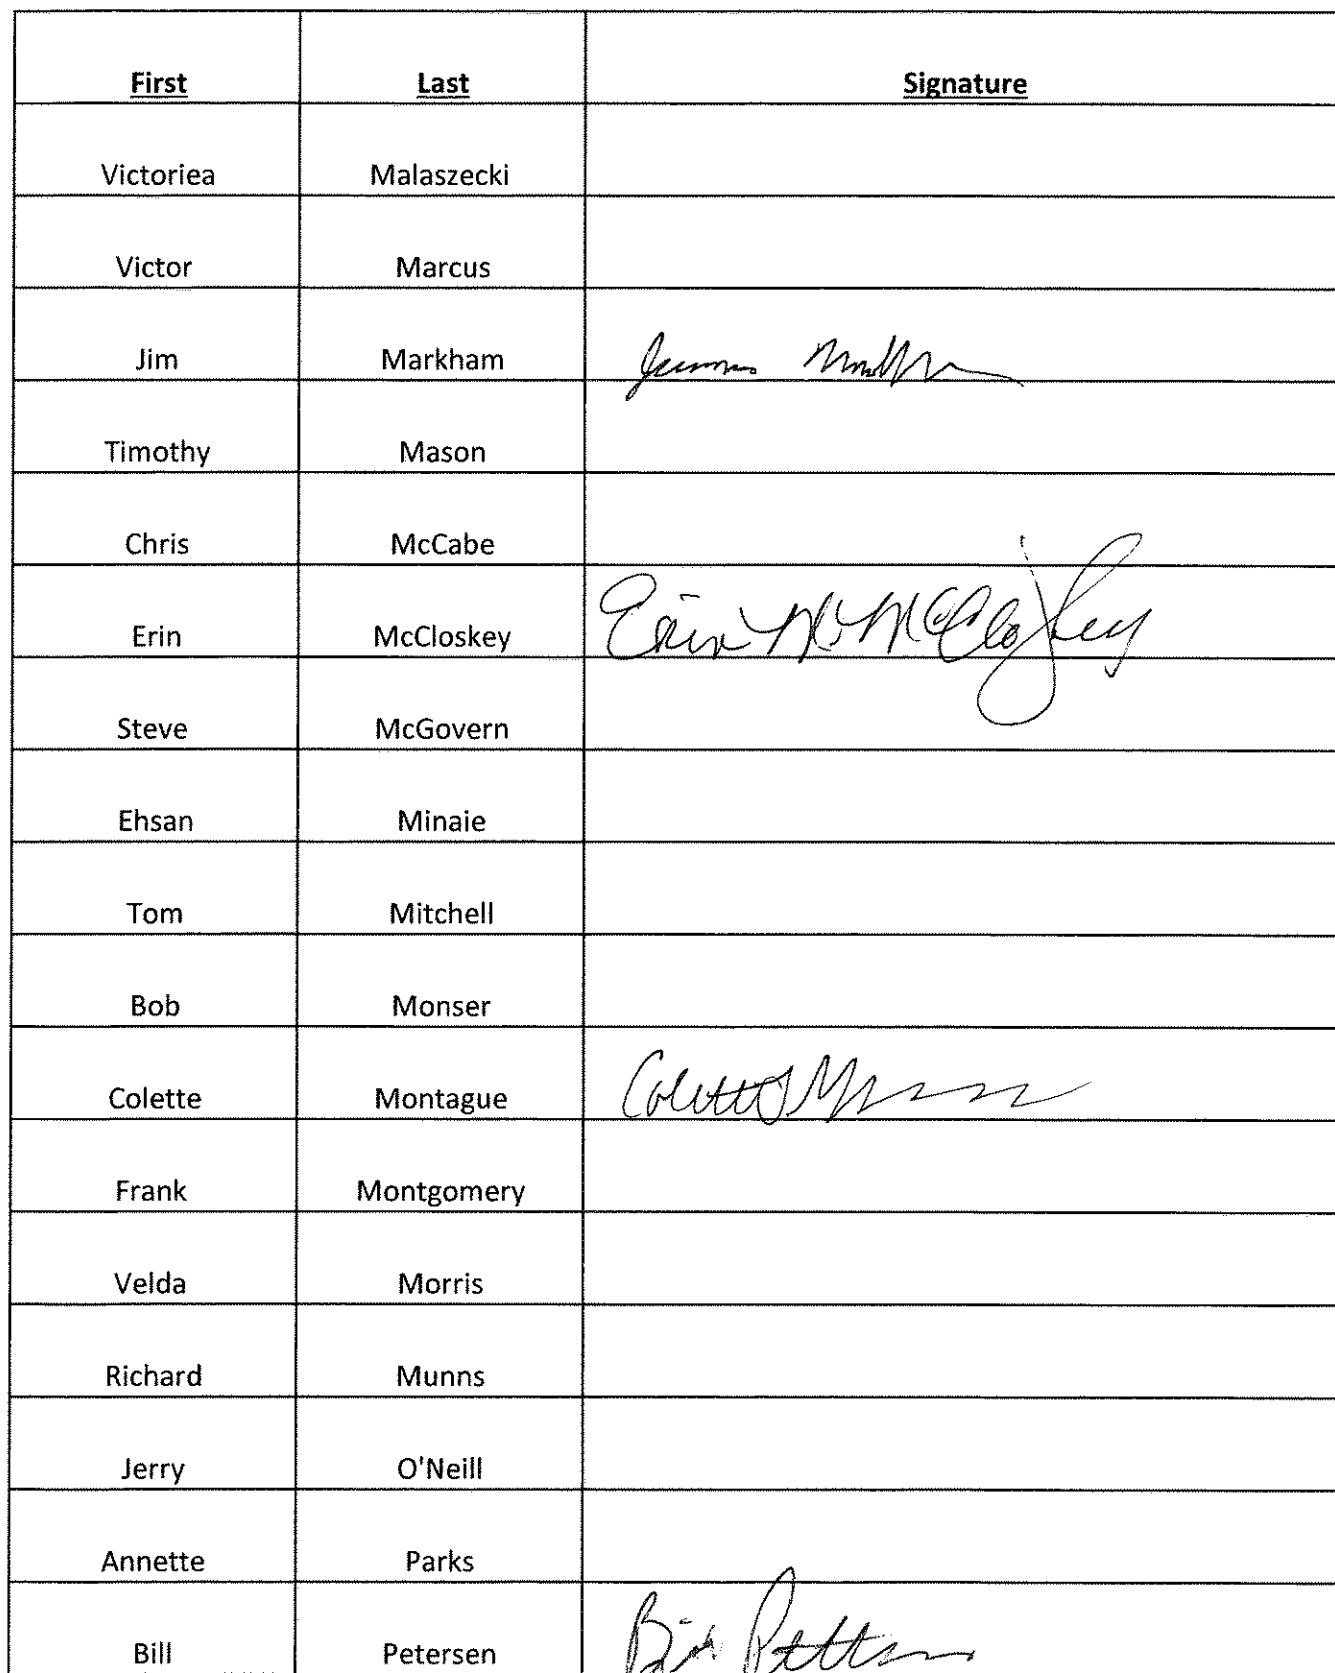 First Last Signature
Victoriea Malaszecki
Victor Marcus
Jim Markham James
Timothy Mason
Chris McCabe
Erin McCloskey Erin M. McCloskey
Steve McGovern
Ehsan Minaie
Tom Mitchell
Bob Monser
Colette Montague Colette
Frank Montgomery
Velda Morris
Richard Munns
Jerry O'Neill
Annette Parks
Bill Petersen Bill Petersen